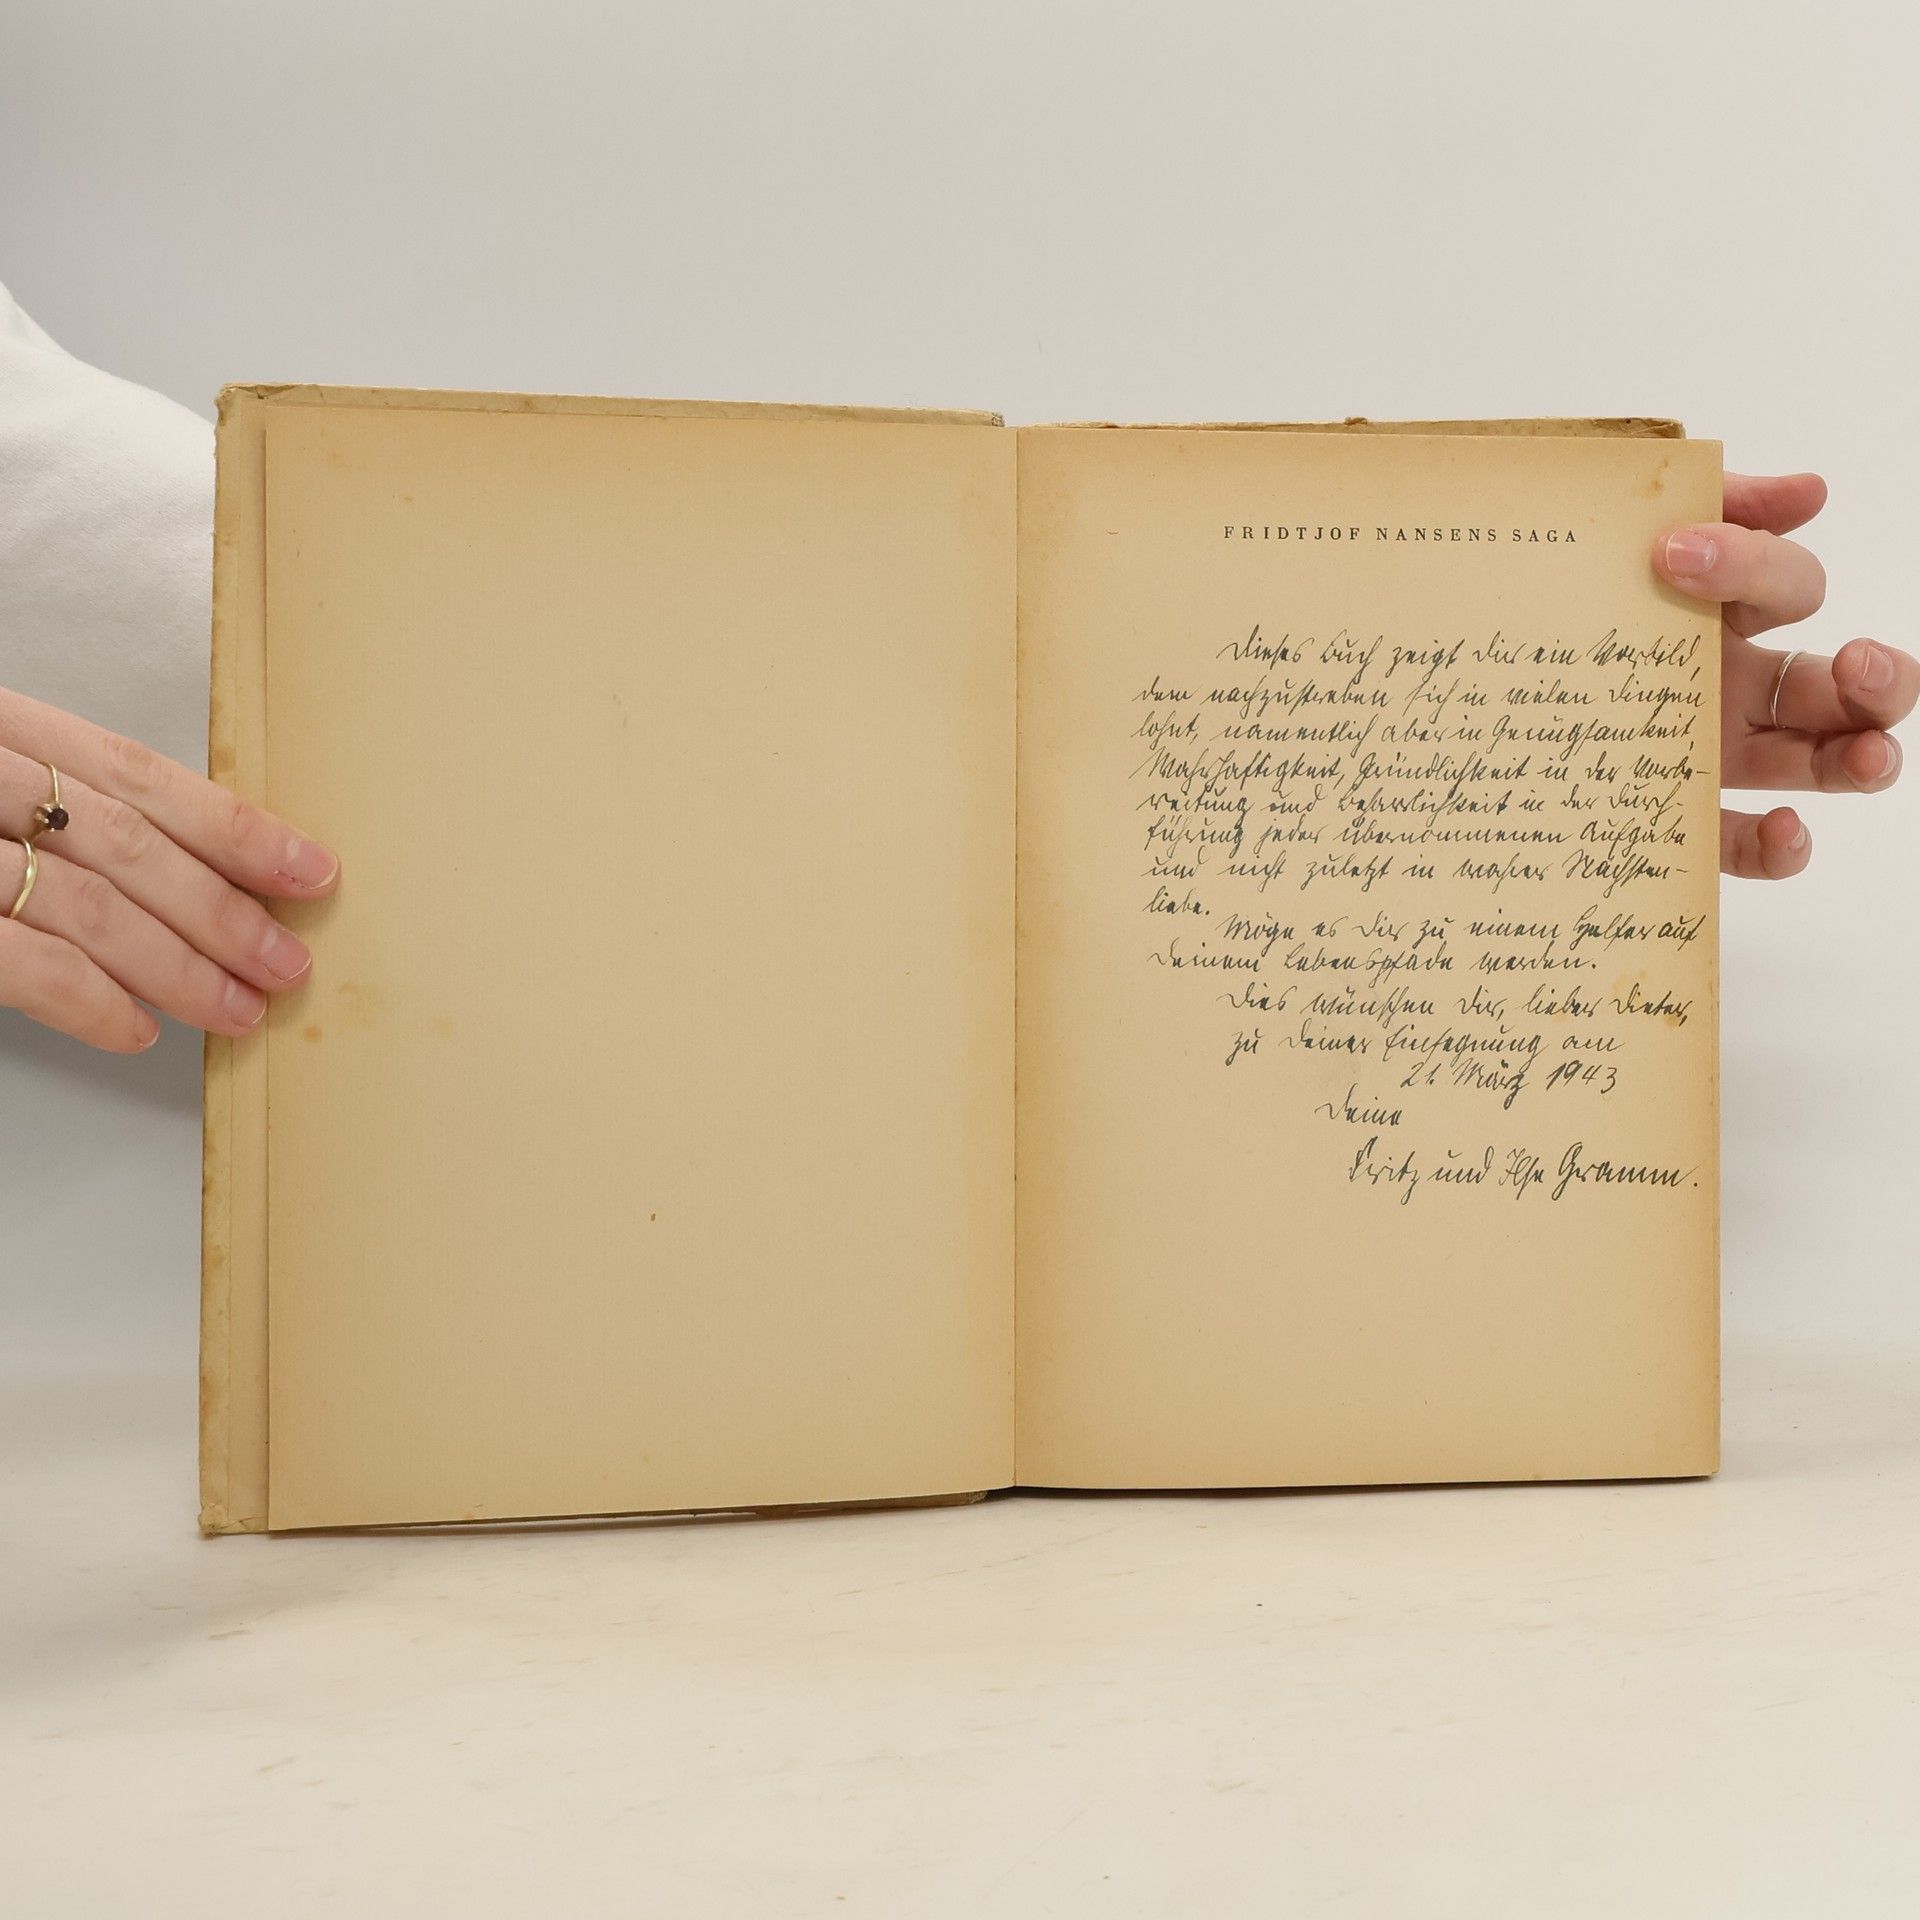 FRIDTJOF NANSENS SAGA
Dieses Buch zeigt Dir ein Vorbild,
dem nachzustreben sich in vielen Dingen
lohnt, namentlich aber in Genügsamkeit,
Wahrhaftigkeit, Gründlichkeit in der Vorbe-
reitung und Beharrlichkeit in der Durch-
führung jeder übernommenen Aufgabe
und nicht zuletzt in wahrer Nächsten-
liebe.
Möge es Dir zu einem Helfer auf
Deinem Lebenspfade werden.
Dies wünschen Dir, lieber Dieter,
zu Deiner Einsegnung am
21. März 1943
Deine
Fritz und Ilse Gramm.